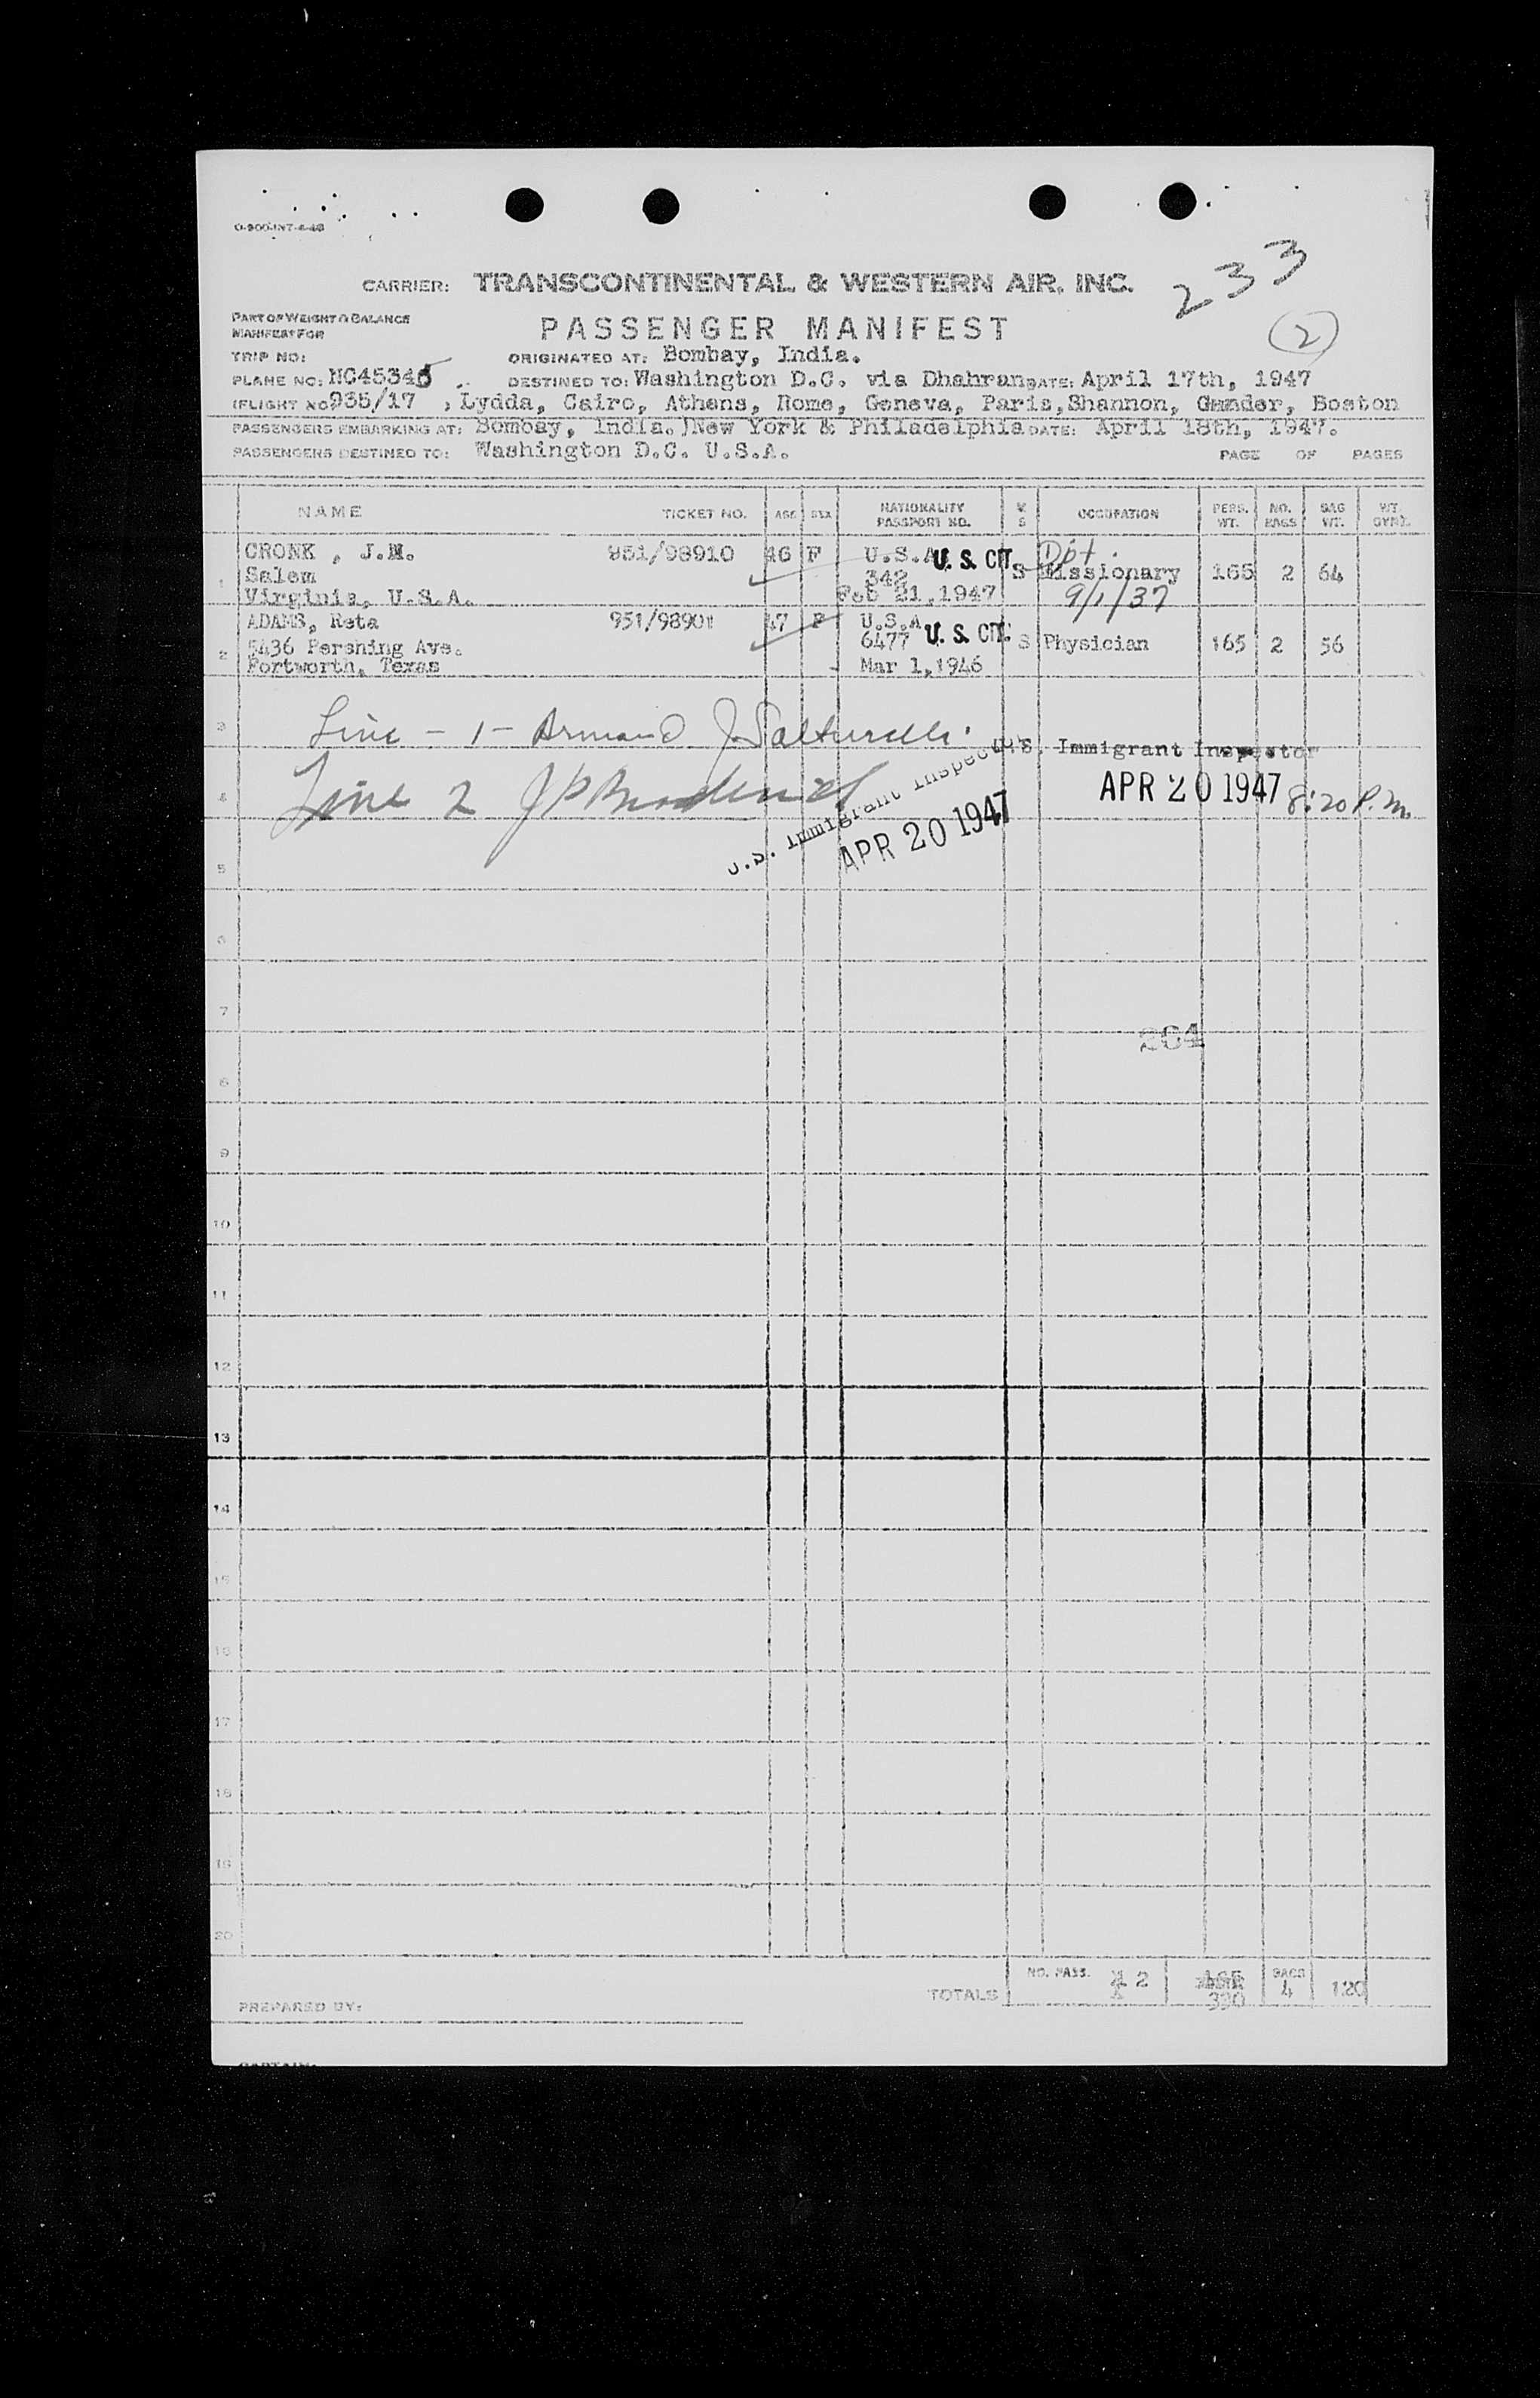 O-900-INT-4-46
233
CARRIER: TRANSCONTINENTAL & WESTERN AIR, INC.
PART OF WEIGHT & BALANCE
MANIFEST FOR
PASSENGER MANIFEST
(2)
TRIP NO:
ORIGINATED AT: Bombay, India.
PLANE NO: NC45346
DESTINED TO: Washington D.C. via Dhahran DATE: April 17th, 1947
(FLIGHT NO 935/17 , Lydda, Cairo, Athens, Rome, Geneva, Paris, Shannon, Gander, Boston
PASSENGERS EMBARKING AT: Bombay, India.)New York & Philadelphia DATE: April 18th, 1947.
PASSENGERS DESTINED TO: Washington D.C. U.S.A.
PAGE OF PAGES
NAME TICKET NO. AGE SEX NATIONALITY PASSPORT NO. M S OCCUPATION PERS. WT. NO. BAGS BAG WT. WT. OVRL.
1 CRONK , J.M. 951/98910 46 F U.S.A U.S. CIT. Dpt.
Salem 342 S Missionary 165 2 64
Virginia, U.S.A. Feb 21,1947 9/1/37
2 ADAMS, Reta 951/98901 47 F U.S.A
5436 Pershing Ave. 6477 U.S. CIT. S Physician 165 2 56
Fortworth, Texas - Mar 1,1946
3 Line - 1 - Armand J.
U.S. Immigrant Inspector
4 Line 2 J P
APR 20 1947 8:20 P.M.
U.S. Immigrant Inspector
APR 20 1947
5
6
7
264
8
9
10
11
12
13
14
15
16
17
18
19
20
TOTALS NO. PASS. 2 330 BAGS 4 120
PREPARED BY:
CAPTAIN: